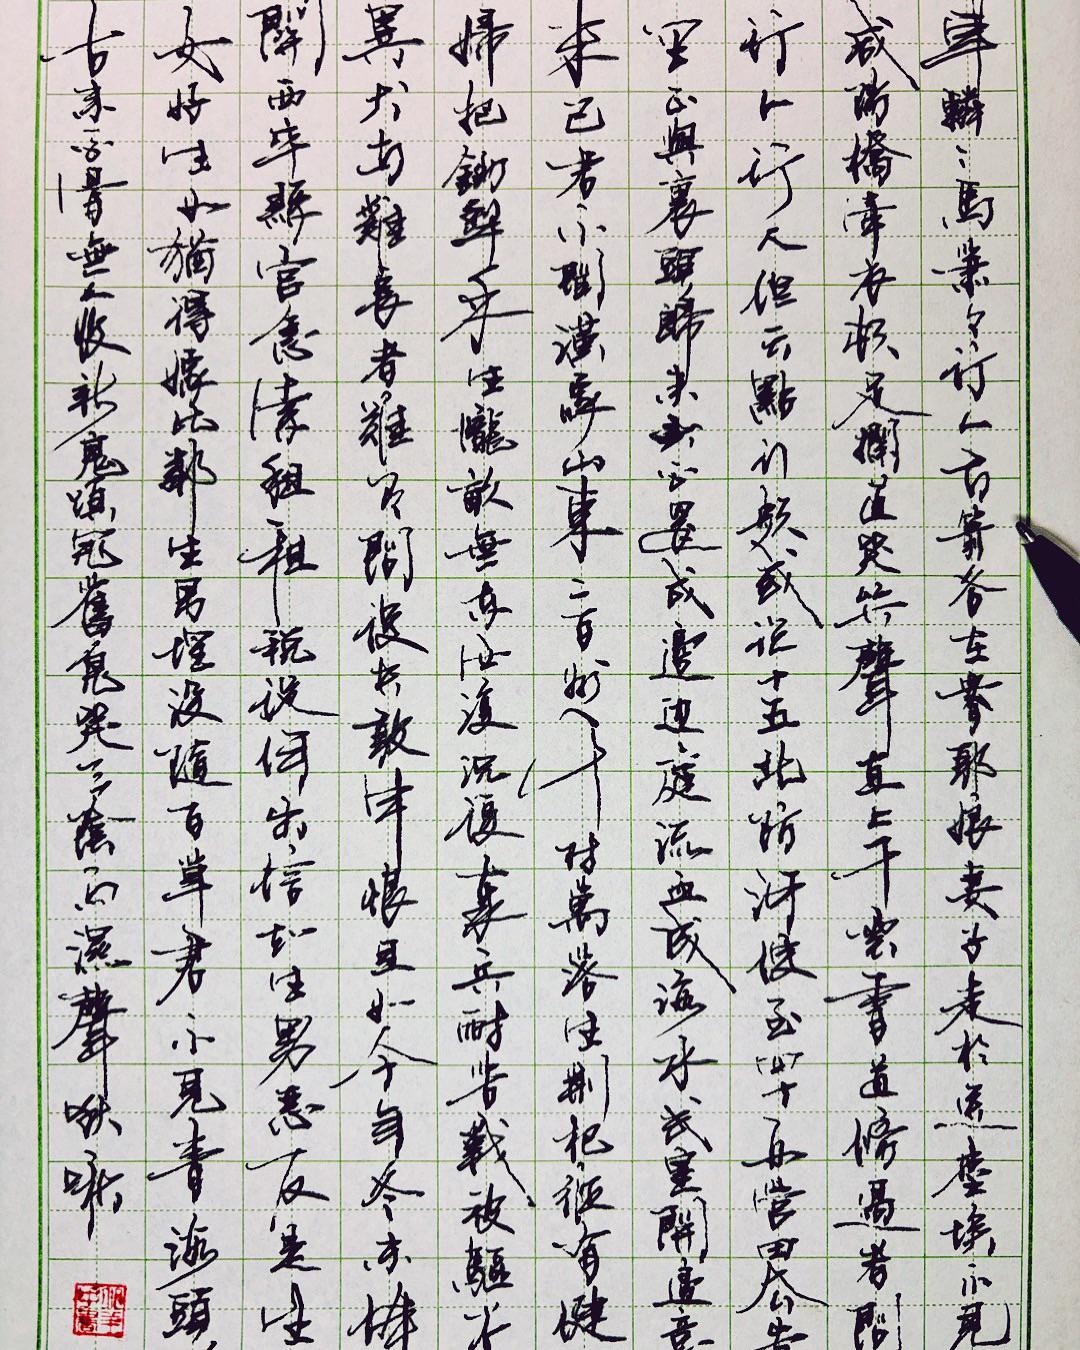 車轔々馬蕭々行人弓箭各在腰耶娘妻子走相送塵埃不見
咸陽橋牽衣頓足攔道哭哭聲直上干雲霄道傍過者問
行人行人但云點行頻或從十五北防河便至四十西營田去
里正與裹頭歸來頭白還戍邊邊庭流血成海水武皇開邊意
未已君不聞漢家山東二百州千村萬落生荊杞縱有健
婦把鋤犁禾生隴畝無東西復況復秦兵耐苦戰被驅不
異犬與雞長者雖有問役夫敢申恨且如今年冬未休
關西卒縣官急索租租稅從何出信知生男惡反是生
女好生女猶得嫁比鄰生男埋沒隨百草君不見青海頭
古來白骨無人收新鬼煩冤舊鬼哭天陰雨濕聲啾啾